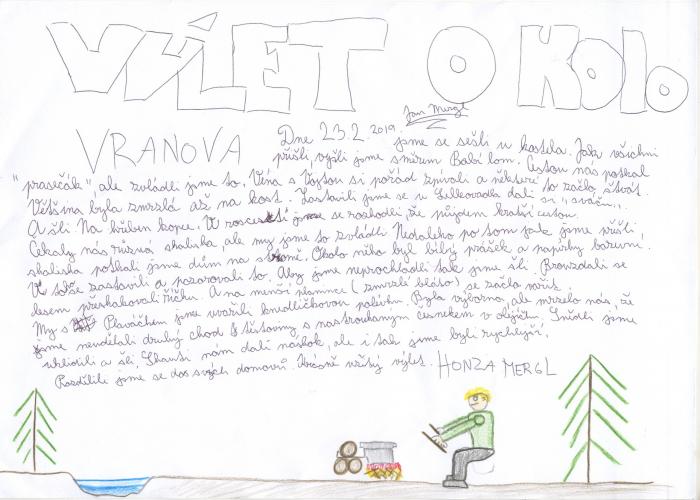 VÝLET O KOLO
Jan Mergl
VRANOVA Dne 23.2.2019. jsme se sešli u kostela. Jak všichni
přišli vyšli jsme směrem Babí lom. Cestou nás potkal
"prasečák", ale zvládli jsme to. Věna s Vojtou si pořád zpívali a některé to začlo štvát.
Většina byla zmrzlá až na kost. Zastavili jsme se u dali si "sváču".
A šli Na hřiben kopce. V se rozhodli, že půjdem kratší cestou.
Čekaly nás různá skaliska, ale my jsme to zvládli. Nedaleko po tom jak jsme přišli,
skaliska potkali jsme dům na stromě. Okolo něho byl bílý prášek a papírky barevní.
V tože zastavili a pozorovali to. Aby jsme neprochladli tak jsme šli. Brouzdali se
lesem přeskakovali říčku. A na menší planince (zmrzlé bláto) se začlo vařit.
My s Plaváčkem jsme uvařili knedlíčkovou polívku. Byla výborná, ale mrzelo nás, že
jsme neudělali druhý chod s nastrouhaným česnekem v olejíčku. Snědli jsme
uklidili a šli. Skauti nám dali náskok, ale i tak jsme byli rychlejší.
Rozdělili jsme se do svojch domovů. Úžasně užitý výlet. HONZA MERGL